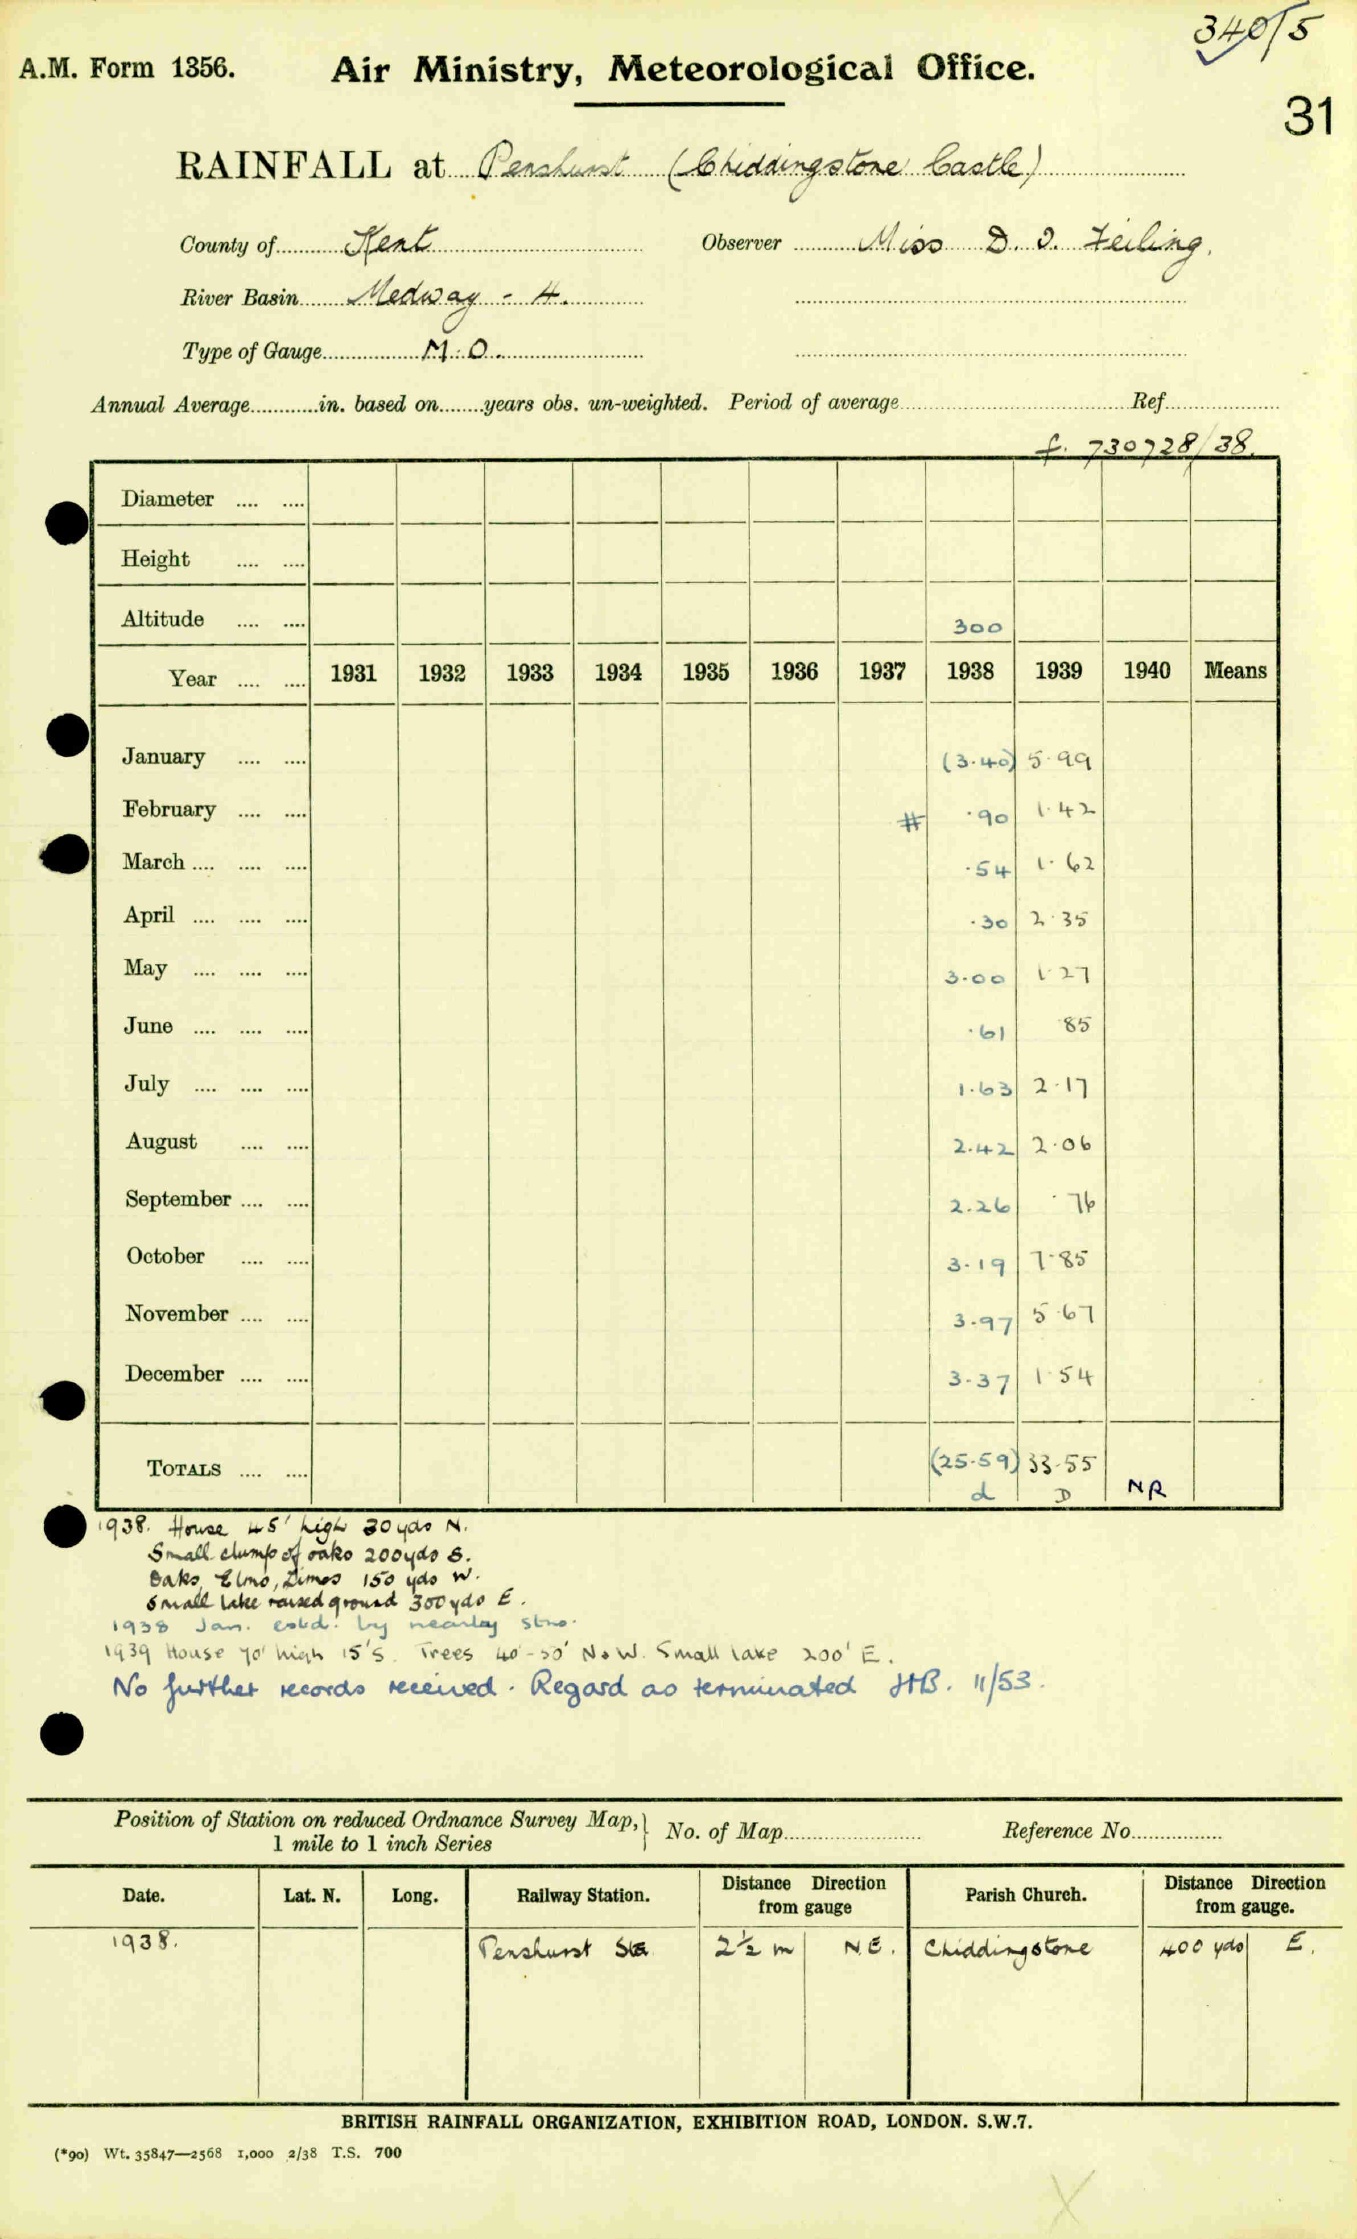 340/5
A.M. Form 1356. Air Ministry, Meteorological Office.
31
RAINFALL at Penshurst (Chiddingstone Castle)
County of Kent Observer Miss D. I. Feiling.
River Basin Medway - 4.
Type of Gauge M.O.
Annual Average............in. based on........years obs. un-weighted. Period of average........ Ref........
f. 730728/38.
Diameter .... ....
Height .... ....
Altitude .... .... 300
Year .... .... 1931 1932 1933 1934 1935 1936 1937 1938 1939 1940 Means
January .... .... (3.40) 5.99
February .... .... # .90 1.42
March .... .... .... .54 1.62
April .... .... .... .30 2.35
May .... .... .... 3.00 1.27
June .... .... .... .61 .85
July .... .... .... 1.63 2.17
August .... .... 2.42 2.06
September .... .... 2.26 .76
October .... .... 3.19 7.85
November .... .... 3.97 5.67
December .... .... 3.37 1.54
TOTALS .... .... (25.59) 33.55
d D NR
1938. House 45' high 30yds N.
Small clump of oaks 200yds S.
Oaks, Elms, Limes 150 yds W.
Small lake raised ground 300yds E.
1938 Jan. estd. by nearby stns.
1939 House 70' high 15'S. Trees 40'-50' N&W. Small lake 200' E.
No further records received. Regard as terminated HB. 11/53.
Position of Station on reduced Ordnance Survey Map, 1 mile to 1 inch Series } No. of Map........ Reference No........
Date. Lat. N. Long. Railway Station. Distance Direction from gauge Parish Church. Distance Direction from gauge.
1938. Penshurst Sta 2½ m N.E. Chiddingstone 400 yds E.
BRITISH RAINFALL ORGANIZATION, EXHIBITION ROAD, LONDON. S.W.7.
(*90) Wt. 35847—2568 1,000 2/38 T.S. 700
X